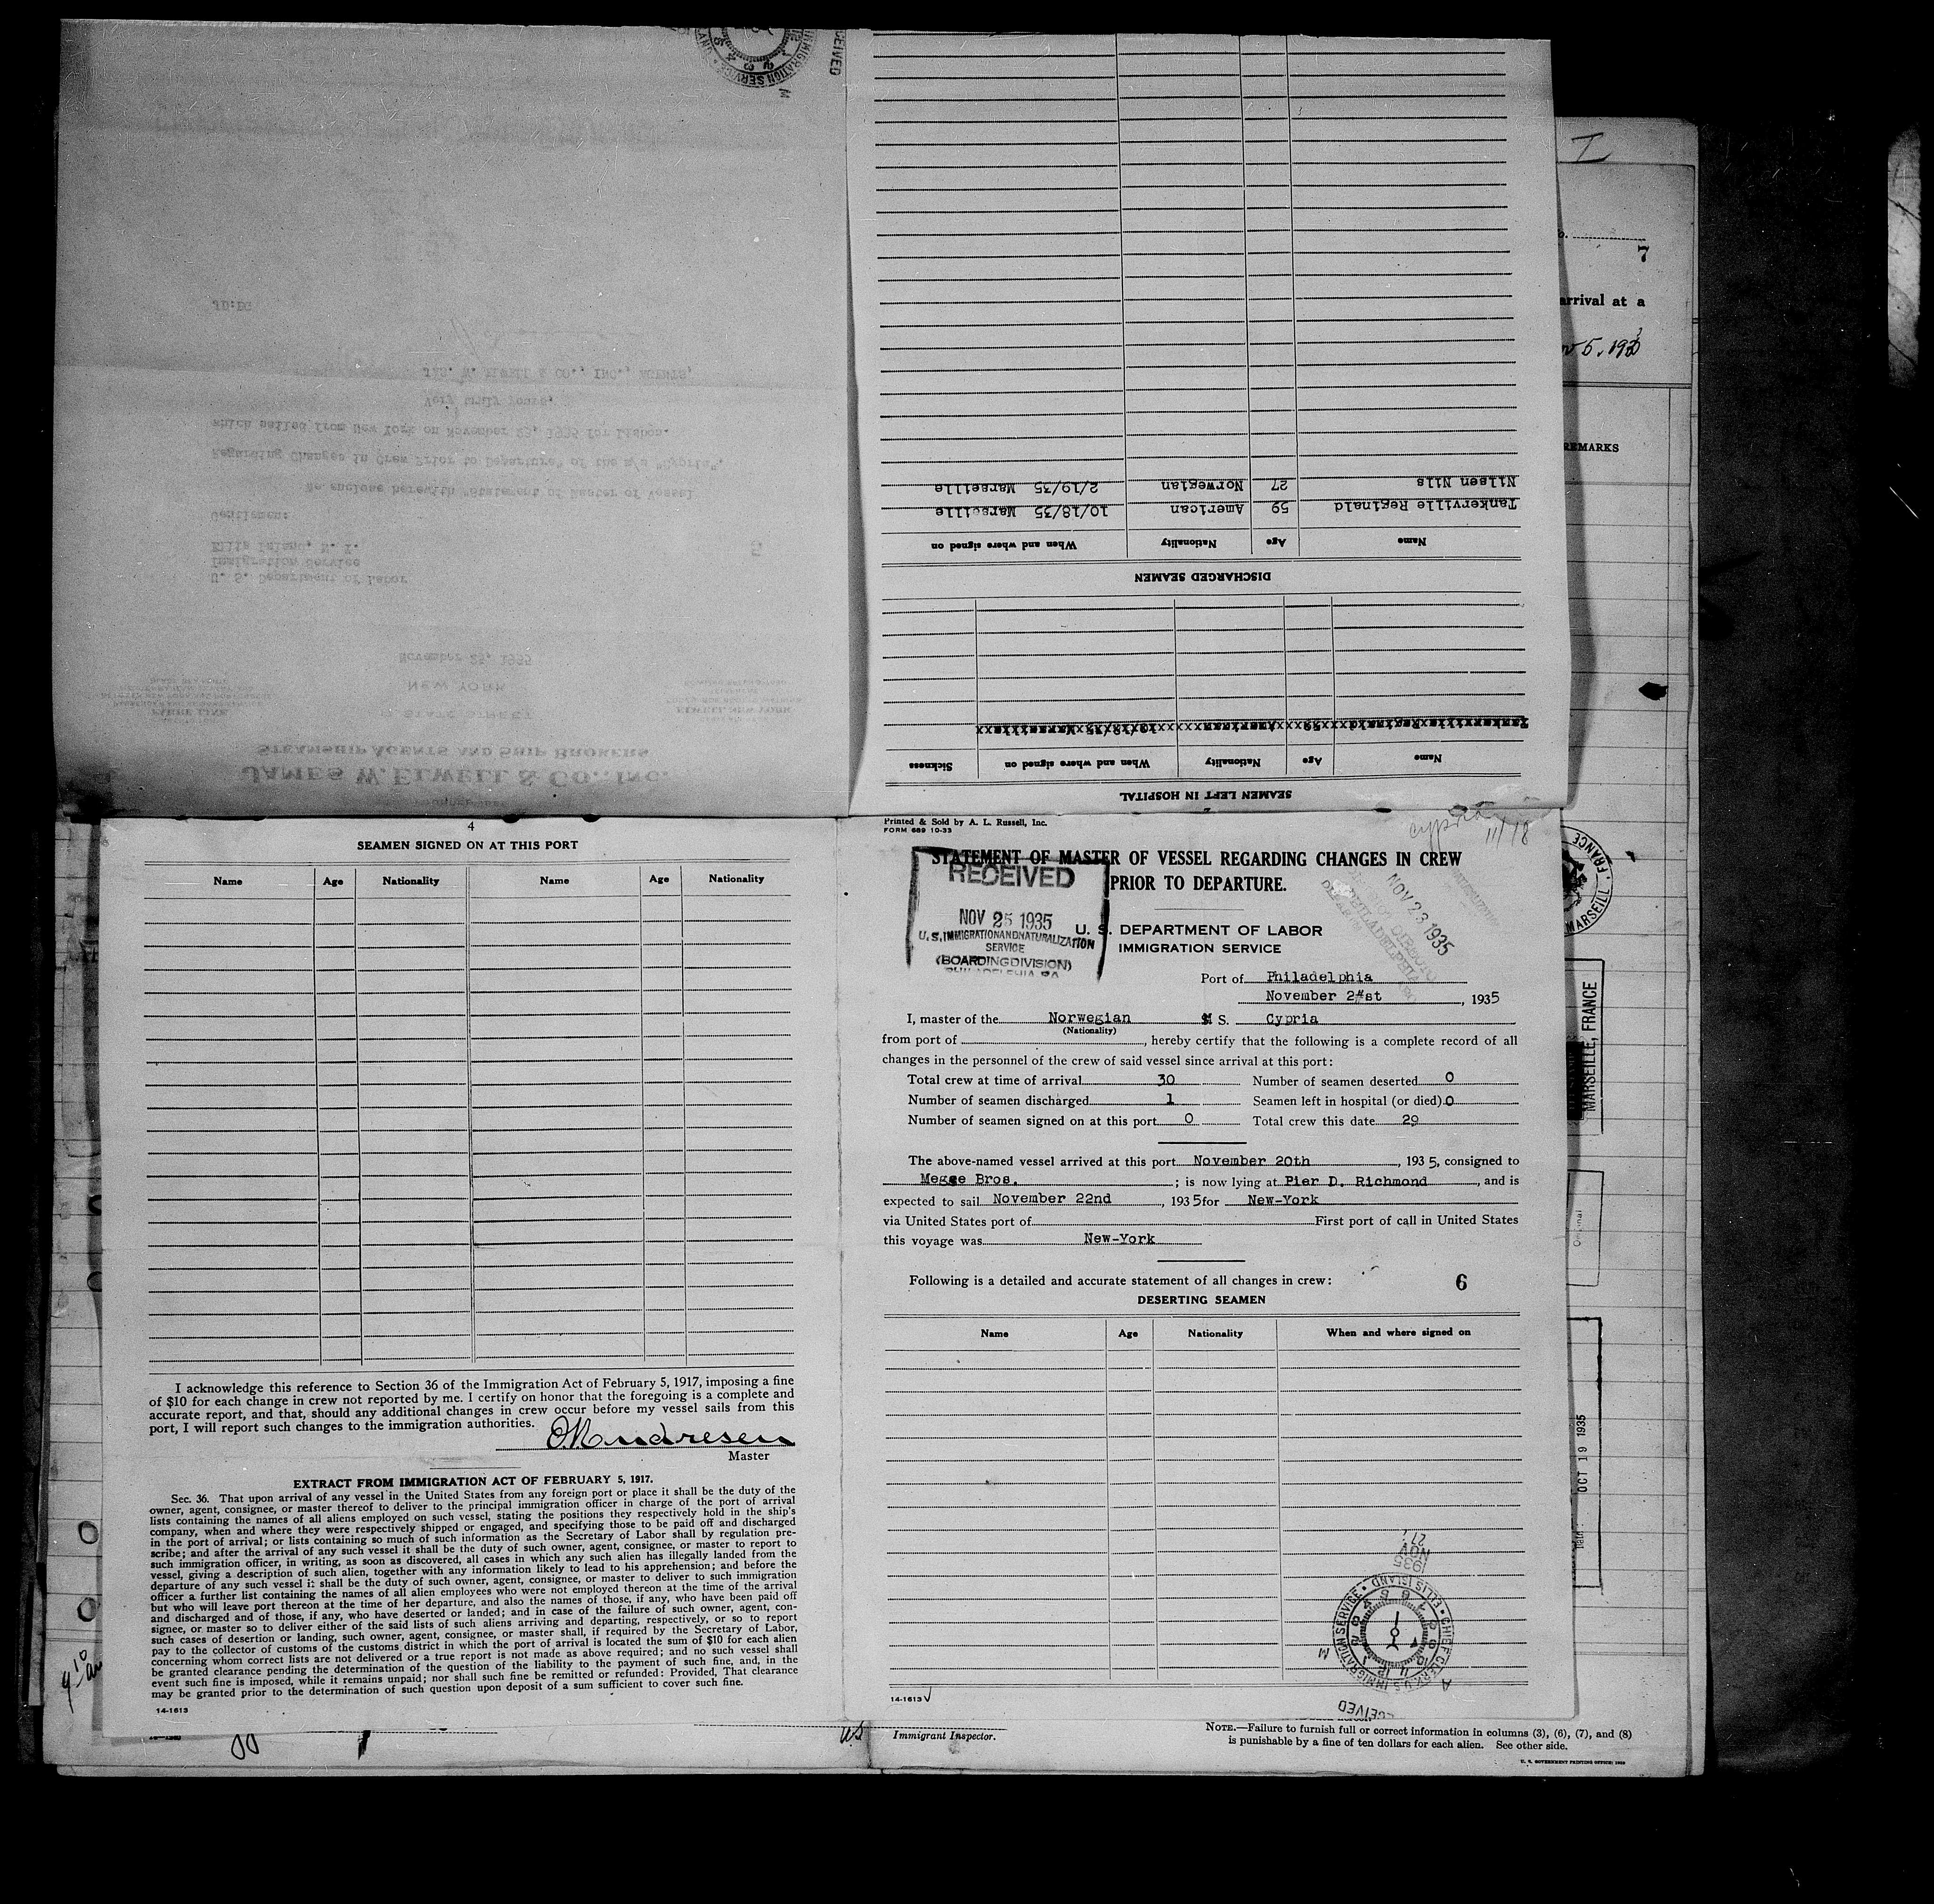 JAMES W. ELWELL & CO., INC.
STEAMSHIP AGENTS AND SHIP BROKERS
17 STATE STREET
NEW YORK
FABRE LINE
November 25, 1935
U. S. Department of Labor
Immigration Service
Ellis Island, N. Y.
5
Gentlemen:
We enclose herewith "Statement of Master of Vessel
Regarding Changes in Crew Prior to Departure" of the m/s "Cypria",
which sailed from New York on November 23, 1935 for Lisbon.
Very truly yours,
JAS. W. ELWELL & CO., INC., AGENTS,
JD:EG
SEAMEN LEFT IN HOSPITAL
Name Age Nationality When and where signed on Sickness
TankervillexReginaldxx59xxAmericanxxxxxxxx10/18/35xMarseillexx
DISCHARGED SEAMEN
Name Age Nationality When and where signed on
Tankerville Reginald 59 American 10/18/35 Marseille
Nilsen Nils 27 Norwegian 2/19/35 Marseille
4
SEAMEN SIGNED ON AT THIS PORT
Name Age Nationality Name Age Nationality
I acknowledge this reference to Section 36 of the Immigration Act of February 5, 1917, imposing a fine
of $10 for each change in crew not reported by me. I certify on honor that the foregoing is a complete and
accurate report, and that, should any additional changes in crew occur before my vessel sails from this
port, I will report such changes to the immigration authorities.
Master
EXTRACT FROM IMMIGRATION ACT OF FEBRUARY 5, 1917.
Sec. 36. That upon arrival of any vessel in the United States from any foreign port or place it shall be the duty of the
owner, agent, consignee, or master thereof to deliver to the principal immigration officer in charge of the port of arrival
lists containing the names of all aliens employed on such vessel, stating the positions they respectively hold in the ship's
company, when and where they were respectively shipped or engaged, and specifying those to be paid off and discharged
in the port of arrival; or lists containing so much of such information as the Secretary of Labor shall by regulation pre-
scribe; and after the arrival of any such vessel it shall be the duty of such owner, agent, consignee, or master to report to
such immigration officer, in writing, as soon as discovered, all cases in which any such alien has illegally landed from the
vessel, giving a description of such alien, together with any information likely to lead to his apprehension; and before the
departure of any such vessel it shall be the duty of such owner, agent, consignee, or master to deliver to such immigration
officer a further list containing the names of all alien employees who were not employed thereon at the time of the arrival
but who will leave port thereon at the time of her departure, and also the names of those, if any, who have been paid off
and discharged and of those, if any, who have deserted or landed; and in case of the failure of such owner, agent, con-
signee, or master so to deliver either of the said lists of such aliens arriving and departing, respectively, or so to report
such cases of desertion or landing, such owner, agent, consignee, or master shall, if required by the Secretary of Labor,
pay to the collector of customs of the customs district in which the port of arrival is located the sum of $10 for each alien
concerning whom correct lists are not delivered or a true report is not made as above required; and no such vessel shall
be granted clearance pending the determination of the question of the liability to the payment of such fine, and, in the
event such fine is imposed, while it remains unpaid; nor shall such fine be remitted or refunded: Provided, That clearance
may be granted prior to the determination of such question upon deposit of a sum sufficient to cover such fine.
14-1613
Printed & Sold by A. L. Russell, Inc.
FORM 689 10-33
Cypria
11/18
STATEMENT OF MASTER OF VESSEL REGARDING CHANGES IN CREW
PRIOR TO DEPARTURE.
RECEIVED
NOV 25 1935
U.S. IMMIGRATION AND NATURALIZATION
SERVICE
(BOARDING DIVISION)
PHILADELPHIA PA
NOV 23 1935
U. S. DEPARTMENT OF LABOR
IMMIGRATION SERVICE
Port of Philadelphia
November 21st, 1935
I, master of the Norwegian M S. Cypria
(Nationality)
from port of , hereby certify that the following is a complete record of all
changes in the personnel of the crew of said vessel since arrival at this port:
Total crew at time of arrival 30 Number of seamen deserted 0
Number of seamen discharged 1 Seamen left in hospital (or died) 0
Number of seamen signed on at this port 0 Total crew this date 29
The above-named vessel arrived at this port November 20th, 1935, consigned to
Megee Bros. ; is now lying at Pier D. Richmond, and is
expected to sail November 22nd, 1935 for New-York
via United States port of First port of call in United States
this voyage was New-York
Following is a detailed and accurate statement of all changes in crew:
6
DESERTING SEAMEN
Name Age Nationality When and where signed on
1935
NOV
27
CHIEF CLERK U.S. IMMIGRATION SERVICE • ELLIS ISLAND •
A M
14-1613
7
arrival at a
REMARKS
MARSEILLE, FRANCE
OCT 19 1935
US
Immigrant Inspector.
NOTE.—Failure to furnish full or correct information in columns (3), (6), (7), and (8)
is punishable by a fine of ten dollars for each alien. See other side.
U. S. GOVERNMENT PRINTING OFFICE